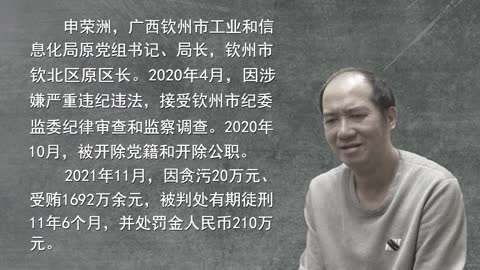 申荣洲，广西钦州市工业和信
息化局原党组书记、局长，钦州市
钦北区原区长。2020年4月，因涉
嫌严重违纪违法，接受钦州市纪委
监委纪律审查和监察调查。2020年
10月，被开除党籍和开除公职。
2021年11月，因贪污20万元、
受贿1692万余元，被判处有期徒刑
11年6个月，并处罚金人民币210万
元。